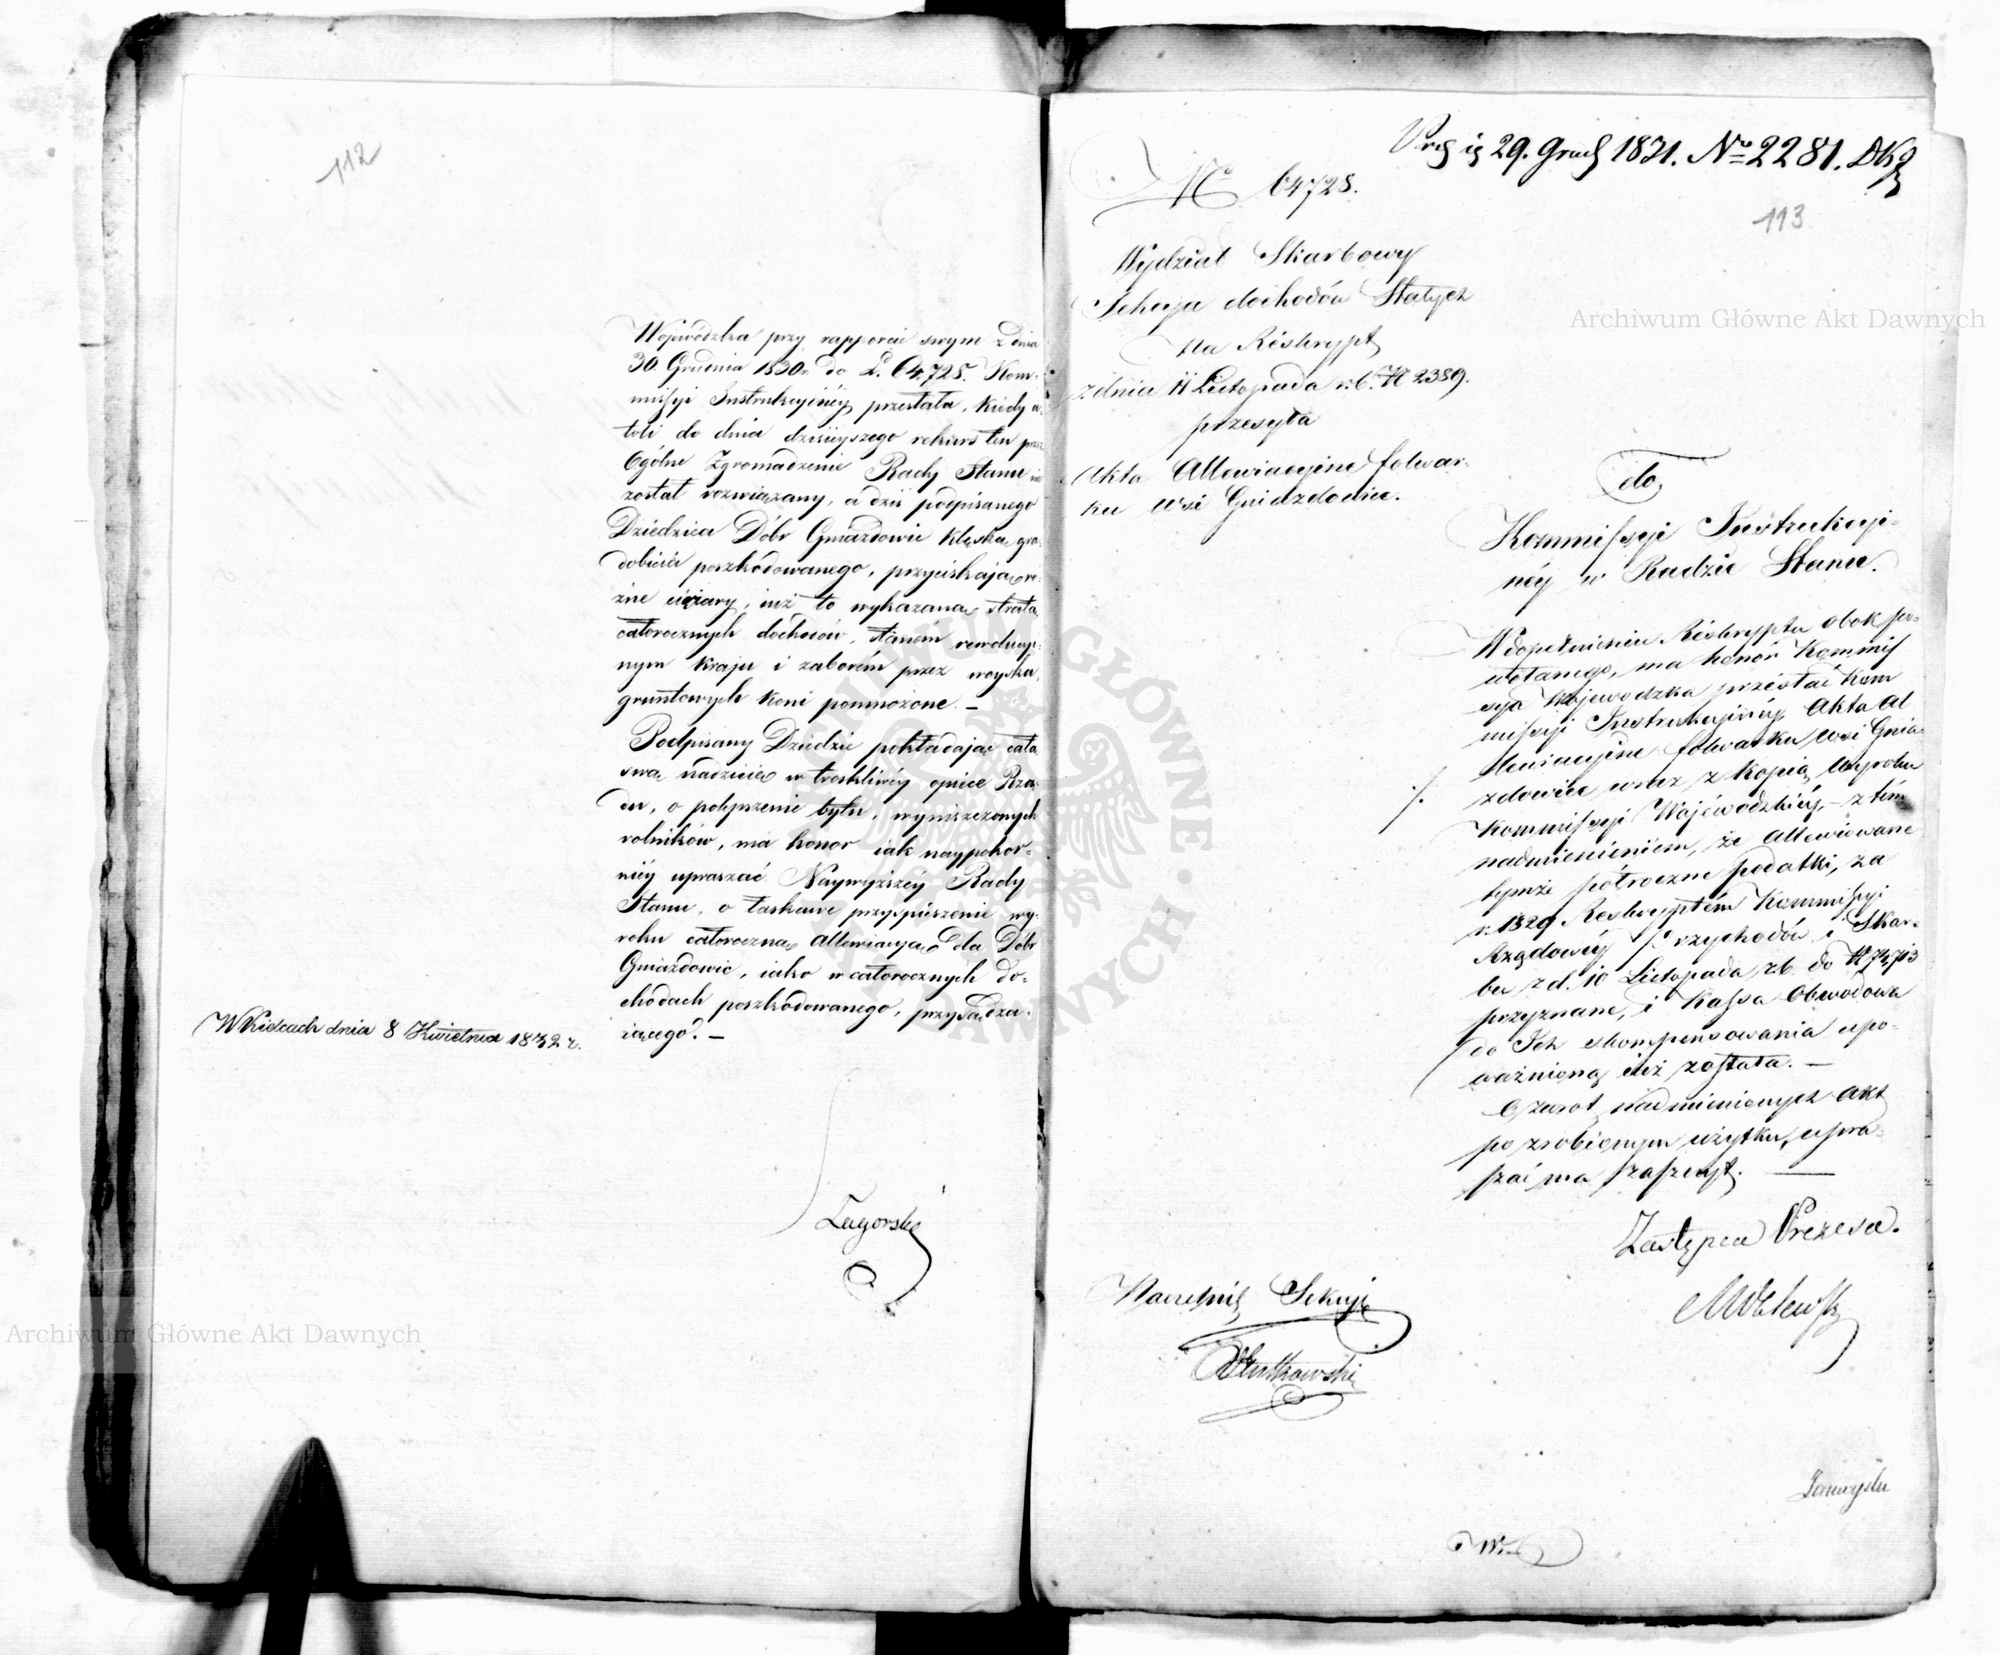 112
Wojewódzka przy rapporcie swym z dnia
30. Grudnia 1830r. do L. 64,725. Kom-
missyi Instrukcyinéy przesłała, kiedy a-
toli do dnia dzisieyszego rekurs ten przez
Ogólne Zgromadzenie Rady Stanu nie
został rozwiązany, a dziś podpisanego
Dziedzica Dóbr Gniazdowic klęską gra-
dobicia poszkodowanego, przyciskają ró-
żne ciężary, iuż to wykazaną stratą
całorocznych dochodów, stanem rewolucyi-
nym kraju i zaborem przez woyska,
gruntowych koni pomnożone. —
Podpisany Dziedzic pokładaiąc całą
swą nadzieię w troskliwéy opiece Rzą-
du, o polepszenie bytu, wyniszczonych
rolników, ma honor iak naypokor-
niéy upraszać Naywyższéy Rady
Stanu, o łaskawe przyspieszenie wy-
roku całoroczną allewiacyą dla Dóbr
Gniazdowic, iako w całorocznych do-
chodach poszkodowanego, przysądza-
iącego. —
W Kielcach dnia 8 Kwietnia 1832 r.
Zagorski
29. Grud 1831. No 2281.
113
No 64725.
Wydział Skarbowy
Sekcya dochodów Stałych
Na Reskrypt
z dnia 11 Listopada r.b. N 2389.
przesyła
Akta Allewiacyine folwar-
ku wsi Gniazdowice.
do
Kommissyi Instrukcyi-
néy w Radzie Stanu.
W dopełnieniu Reskryptu obok po-
wołanego, ma honor Kommis
syia Wojewodzka przesłać Kom
missyi Instrukcyinéy Akta Al
lewiacyine folwarku wsi Gnia-
zdowice wraz z kopią Wyroku
Kommissyi Wojéwodzkiéy, — z tém
nadmienieniem, że allewiowane
tymże półroczne podatki, za
r. 1829 Reskryptém Kommissyi
Rządowéy Przychodów i Skar-
bu z d. 10 Listopada r.b. do N 74,713
przyznane, i Kassa Obwodowa
do Ich skompensowania upo-
ważnioną iuż została. —
O zwrot nadmienionych akt
po zrobionym użytku, upra-
szać ma zaszczyt. —
Zastępca Prezesa.
Naczelnik Sekcyi